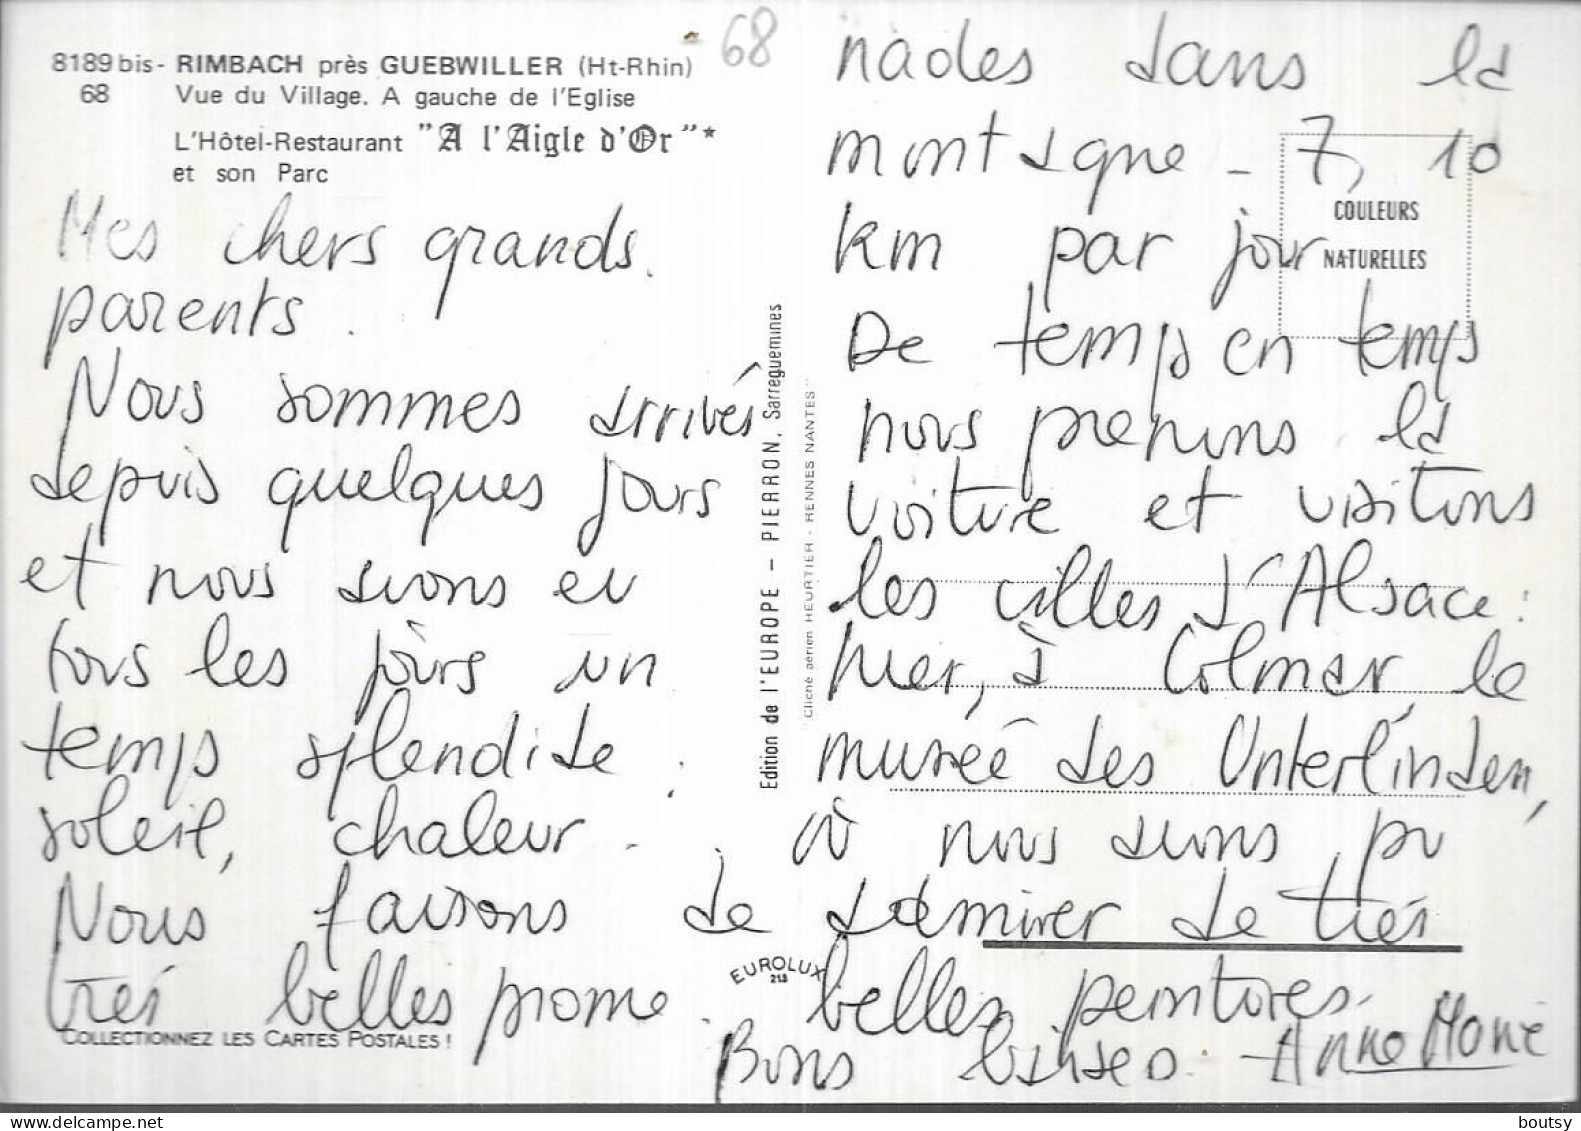 8189 bis - RIMBACH près GUEBWILLER (Ht-Rhin)
68 Vue du Village. A gauche de l'Eglise
L'Hôtel-Restaurant "A l'Aigle d'Or"*
et son Parc
68
Mes chers grands
parents.
Nous sommes arrivés
depuis quelques jours
et nous avons eu
tous les jours un
temps splendide :
soleil, chaleur..
Nous faisons de
très belles prome
COLLECTIONNEZ LES CARTES POSTALES !
Edition de l'EUROPE – PIERRON, Sarreguemines
Cliché aérien HEURTIER - RENNES NANTES
EUROLUX
213
COULEURS
NATURELLES
nades dans la
montagne - 7, 10
km par jour
De temps en temps
nous prenons la
voiture et visitons
les villes d'Alsace :
hier, à Colmar le
musée des Unterlinden,
où nous avons pu
admirer de très
belles peintures.
Bons baisers. Anne Marie
boutsy